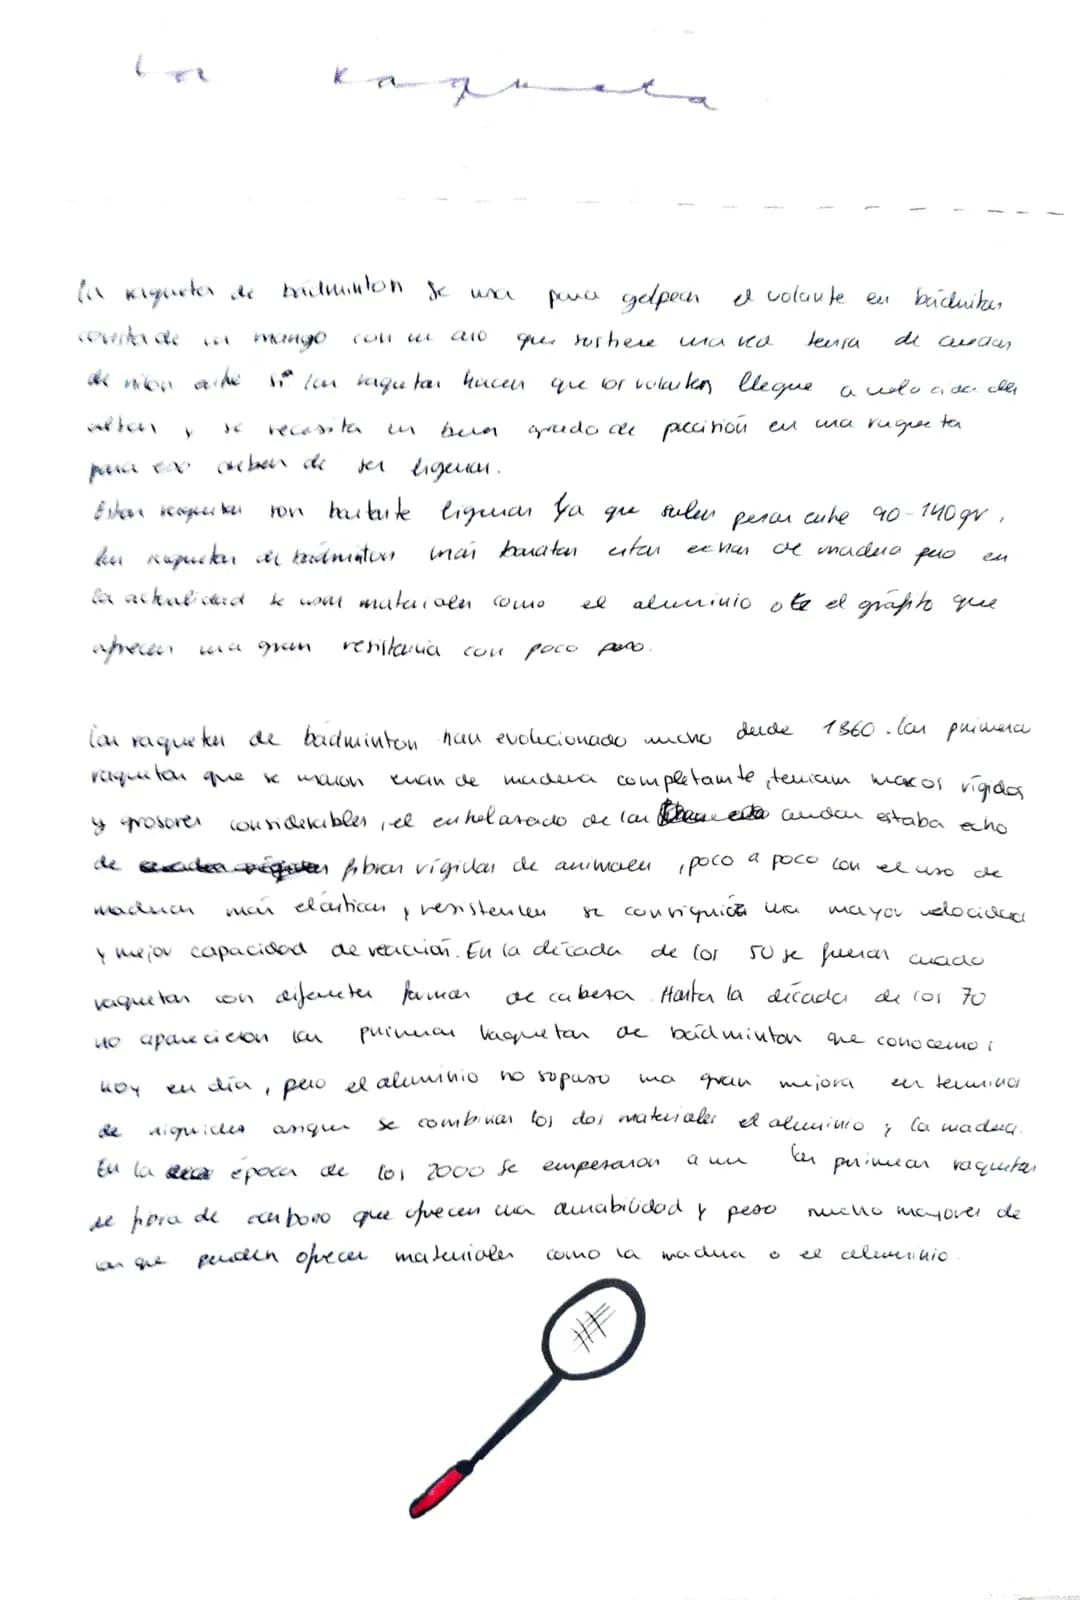 La raqueta
La raqueta de bádminton se usa para golpear el volante en bádmiton
consta de un mango con un aro que sostiene una red tensa de cuerdas
de nilon entre si las raquetas hacen que los volantes llegue a velocidades
altas y se necesita un buen grado de precisión en una raqueta
para eso deben de ser ligeras.
Estas raquetas son bastante ligeras ya que suelen pesar entre 90-140gr,
las raquetas de bádminton más baratas estan echas de madera pero en
la actualidad se usan materiales como el aluminio o el gráfito que
ofrecen una gran resistencia con poco peso.
Las raquetas de bádminton han evolucionado mucho desde 1860. Las primera
raquetas que se usaron eran de madera completamte, teniam marcos rígidos
y grosores considerables, el entrelazado de las cuerdas estaba echo
de fibras rígidas de animales, poco a poco con el uso de
maderas más elásticas y resistentes se conseguía una mayor velocidad
y mejor capacidad de reacción. En la década de los 50 se fueron creado
raquetas con diferentes formas de cabesa. Hasta la década de los 70
no aparecieron las primeras raquetas de bádminton que conocemos
hoy en día, pero el aluminio no supuso una gran mejora en terminos
de riguides aunque se combinan los dos materiales el aluminio y la madera.
En la época de los 2000 se empesaron a usar las primeras raquetas
de fibra de carbono que ofrecen una durabilidad y peso mucho mayores de
las que pueden ofrecer materiales como la madera o el aluminio.